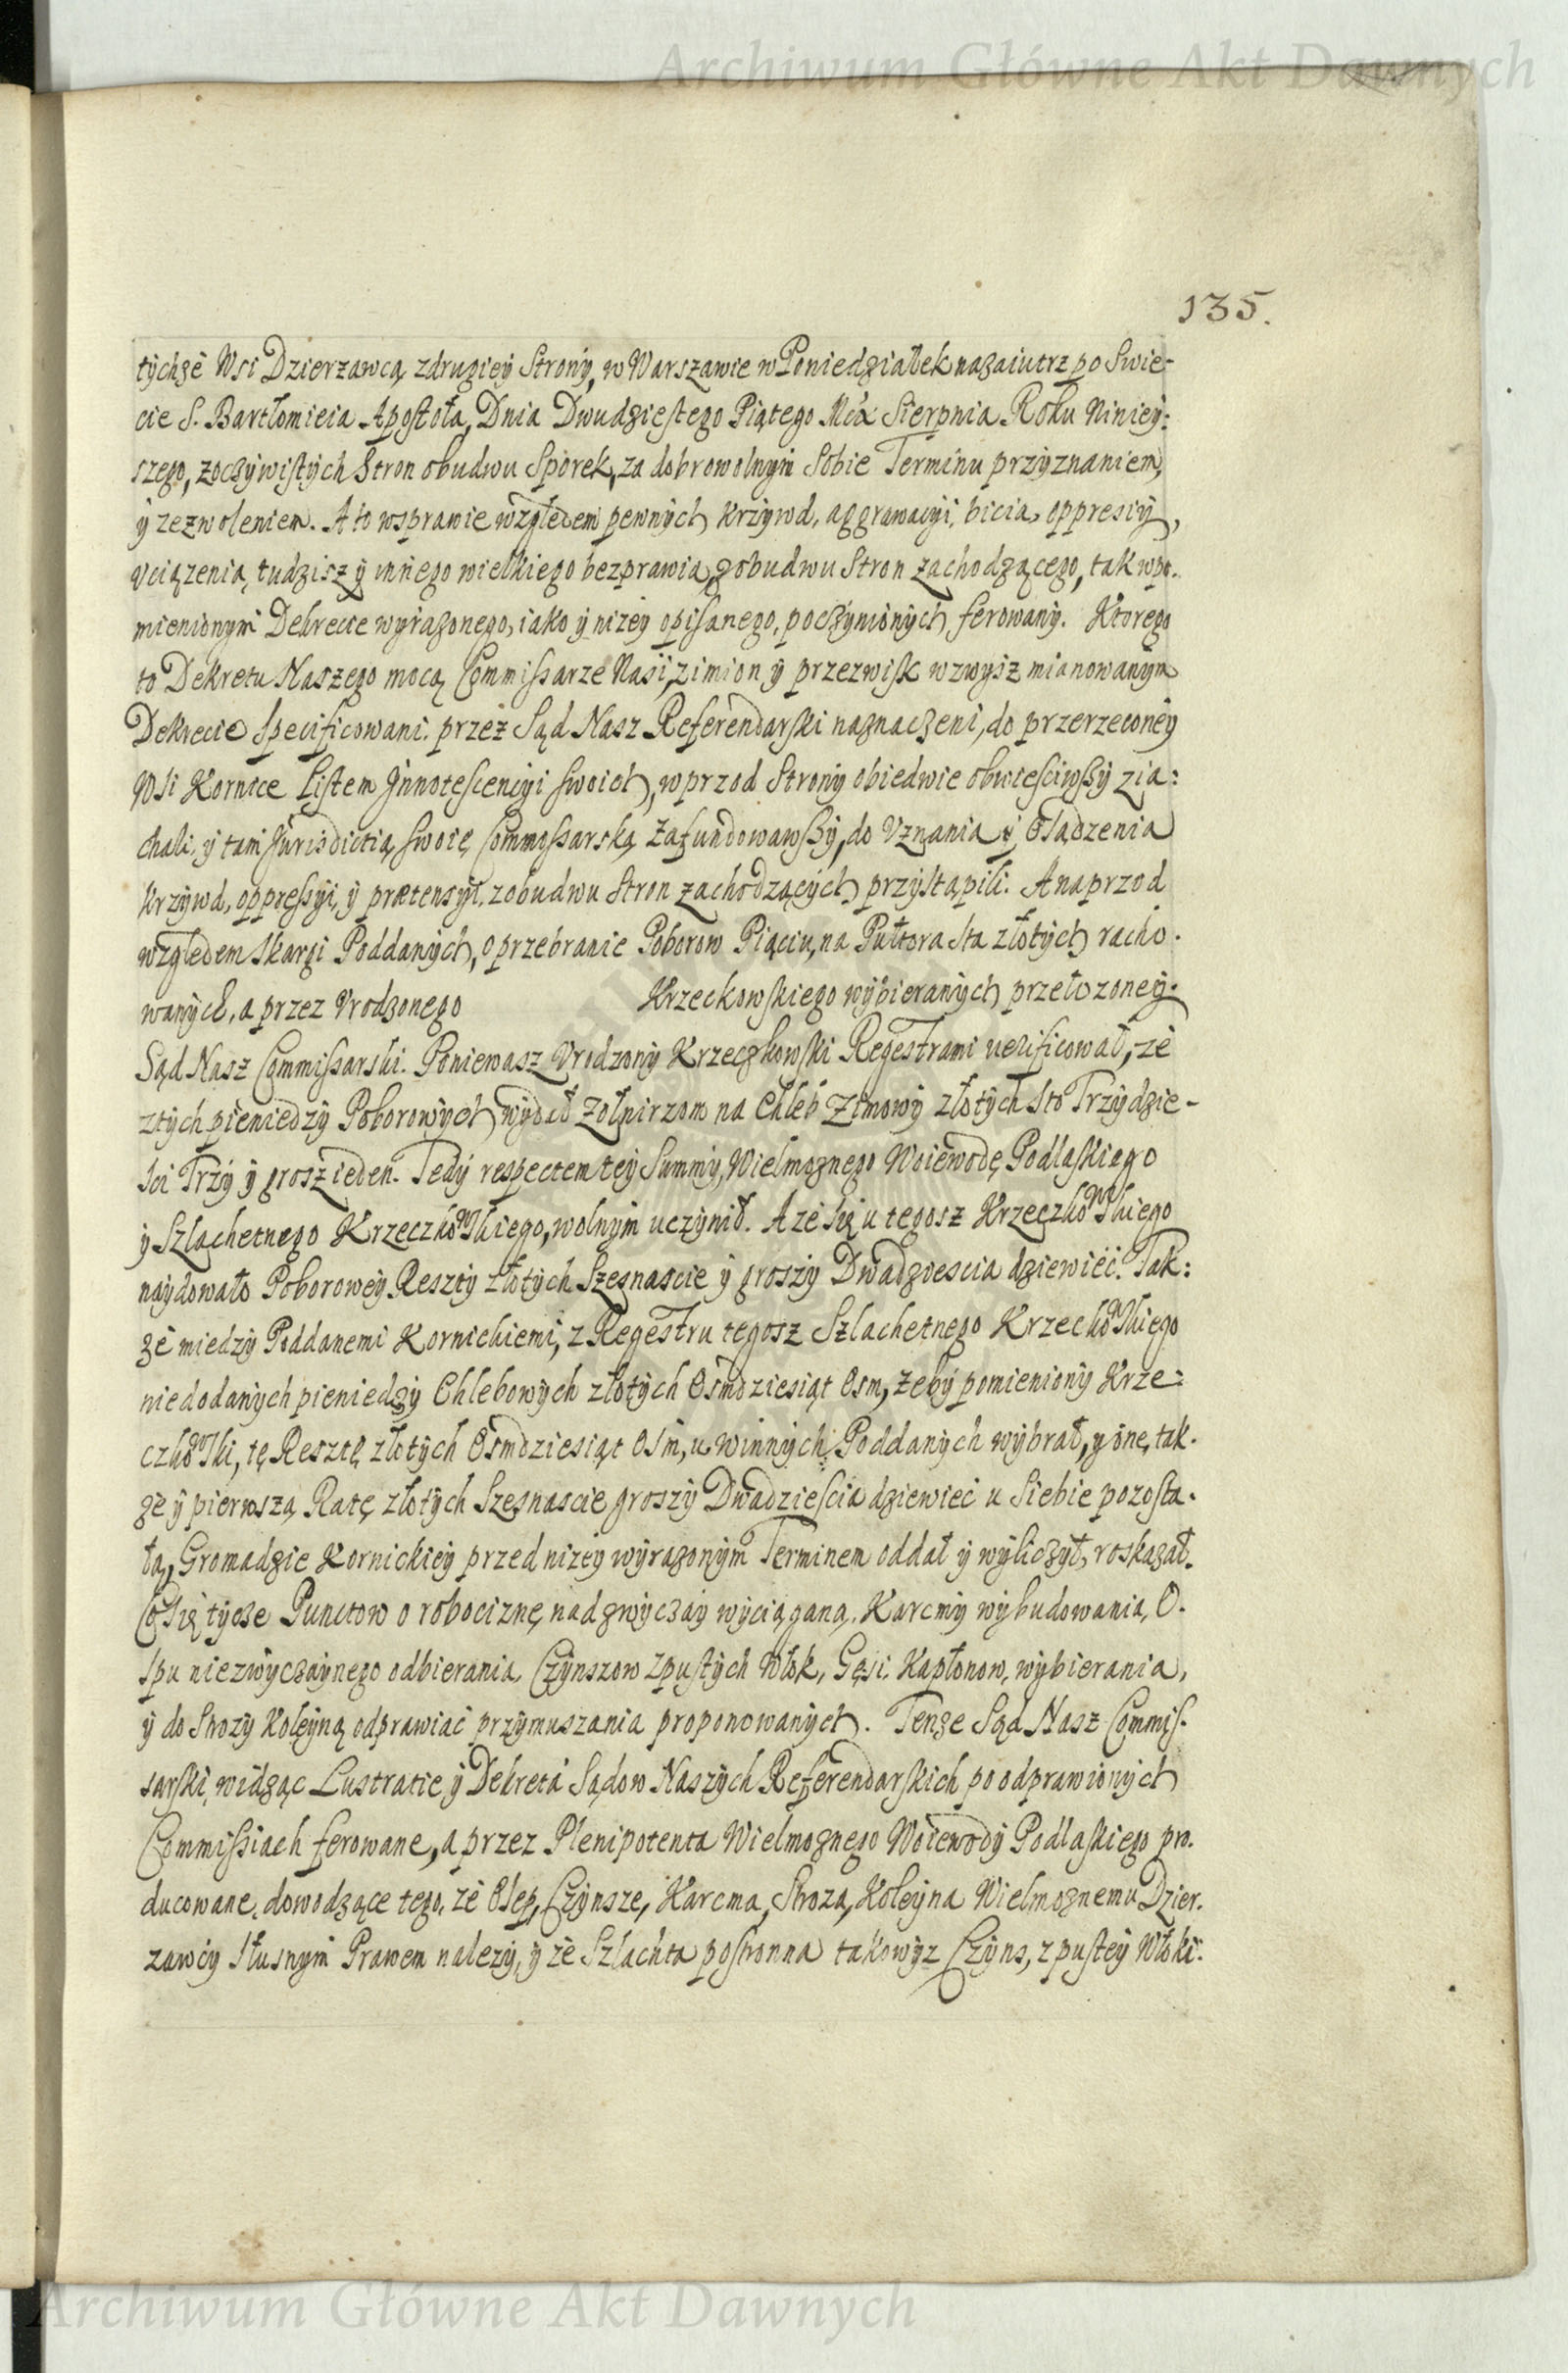 Archiwum Główne Akt Dawnych
135.
tychże Wsi Dzierzawcą z drugiey Strony, w Warszawie w Poniedziałek nazaiutrz po Swie-
cie S. Bartłomieia Apostoła, Dnia Dwudziestego Piątego Mca Sierpnia Roku Niniey:
szego, z oczywistych Stron obudwu Sporek, za dobrowolnym Sobie Terminu przyznaniem,
y zezwoleniem. A to w sprawie względem pewnych krzywd, aggrawacyi, bicia, oppresiy,
Vciązenia, tudzisz y innego wielkiego bezprawia, z obudwu Stron zachodzącego, tak w po-
mienionym Dekrecie wyrazonego, iako y nizey opisanego, poczynionych ferowany. Ktorego
to Dekretu Naszego mocą Commissarze Nasi, z imion y przezwisk w zwysz mianowanym
Dekrecie specificowani. przez Sąd Nasz Referendarski naznaczeni, do przerzeconey
Wsi Kornice Listem Jnnotescencyi swoich, w przod Strony obiedwie obwiesciwszy zia:
chali, y tam Jurisdictią swoię Commissarską zafundowawszy, do Vznania y Osądzenia
krzywd, oppressyi, y prætensyi, z obudwu Stron zachodzących przystąpili. A naprzod
względem skargi Poddanych, o przebranie Poborow Piąciu, na Pułtora sta złotych racho-
wanych, a przez Vrodzonego Krzeckowskiego wybieranych przełozoney.
Sąd Nasz Commissarski. Poniewasz Vrodzony Krzeczkowski Regestrami verificował, że
z tych pieniedzy Poborowych wydał Zołnirzom na Chleb Zimowy złotych Sto Trzydzie-
sci Trzy y grosz ieden. Tedy respectem tey Summy, Wielmoznego Woiewodę Podlaskiego
y Szlachetnego Krzeczkowskiego, wolnym uczynił. A ze się u tegosz Krzeczkowskiego
naydowało Poborowey Reszty złotych Szesnascie y groszy Dwadziescia dziewięć. Tak:
że miedzy Poddanemi Kornickiemi, z Regestru tegosz Szlachetnego Krzeckowskiego
niedodanych pieniedzy Chlebowych złotych Osmdziesiąt Osm, zeby pomieniony Krze:
czkowski, tę Resztę złotych Osmdziesiąt Osm, u winnych Poddanych wybrał, y onę, tak-
że y pierwszą Ratę złotych Szesnascie groszy Dwadziescia dziewieć u siebie pozosta-
łą, Gromadzie Kornickiey przed nizey wyrazonym Terminem oddał y wyliczył, roskazał.
Co się tycze Punctow o robociznę nadzwyczay wyciąganą, Karcmy wybudowania, O-
spu niezwyczaynego odbierania, Czynszow z pustych Włok, Gęsi, Kapłonow, wybierania,
y do Strozy Koleyną odprawiać przymuszania proponowanych. Tenze Sąd Nasz Commis-
sarski, widząc Lustratie, y Dekreta Sądow Naszych Referendarskich po odprawionych
Commissiach ferowane, a przez Plenipotenta Wielmoznego Woiewody Podlaskiego pro-
ducowane, dowodzące tego, że Osep, Czynsze, Karcma, Stroza, Koleyna Wielmoznemu Dzier-
zawcy słusnym Prawem nalezy, y że Szlachta postronna takowyz Czyns, z pustey Włoki.
Archiwum Główne Akt Dawnych